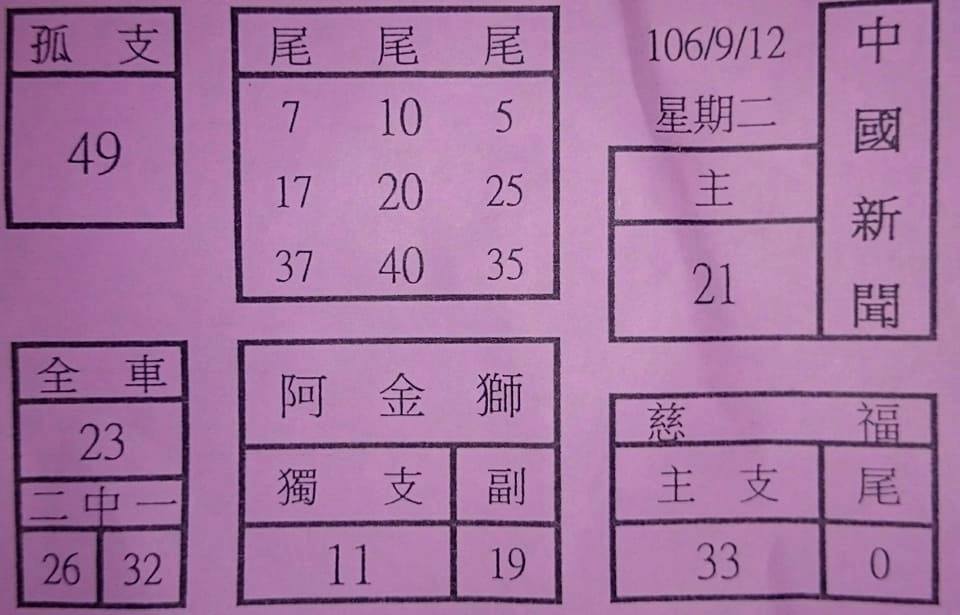 中國新聞
106/9/12
星期二
主
21
尾 尾 尾
7 10 5
17 20 25
37 40 35
孤 支
49
慈 福
主 支 尾
33 0
阿 金 獅
獨 支 副
11 19
全 車
23
二 中 一
26 32